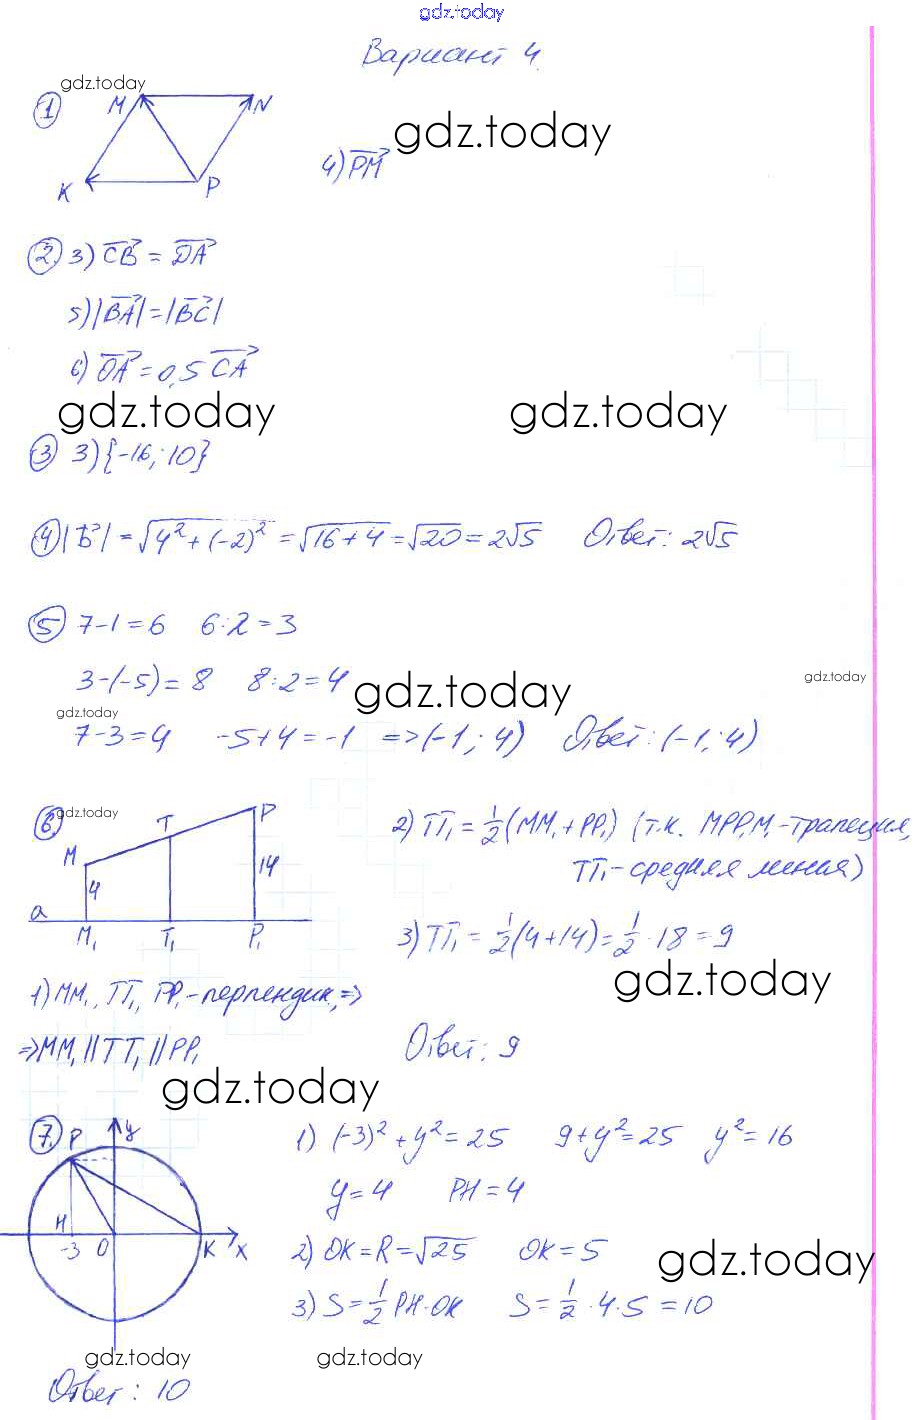 gdz.today
Вариант 4.
gdz.today
1 M N
gdz.today
4) PM
K P
2. 3) CB = DA
5) |BA| = |BC|
6) OA = 0,5 CA
gdz.today gdz.today
3 3) {-16; 10}
4 |b| = √4² + (-2)² = √16+4 = √20 = 2√5 Ответ: 2√5
5 7-1=6 6:2=3
3-(-5)=8 8:2=4
gdz.today
gdz.today
gdz.today
7-3=4 -5+4=-1 => (-1; 4) Ответ: (-1; 4)
6. gdz.today
M T P
4 14
a
M₁ T₁ P₁
2) TT₁ = 1/2 (MM₁ + PP₁) (т.к. MPP₁M₁ - трапеция,
TT₁ - средняя линия)
3) TT₁ = 1/2 (4+14) = 1/2 · 18 = 9
gdz.today
1) MM₁, TT₁, PP₁ - перпендик., =>
=> MM₁ || TT₁ || PP₁
Ответ: 9
gdz.today
7. P y
H
-3 O K x
1) (-3)² + y² = 25 9 + y² = 25 y² = 16
y = 4 PH = 4
2) OK = R = √25 OK = 5
gdz.today
3) S = 1/2 PH · OK S = 1/2 · 4 · 5 = 10
gdz.today gdz.today
Ответ: 10